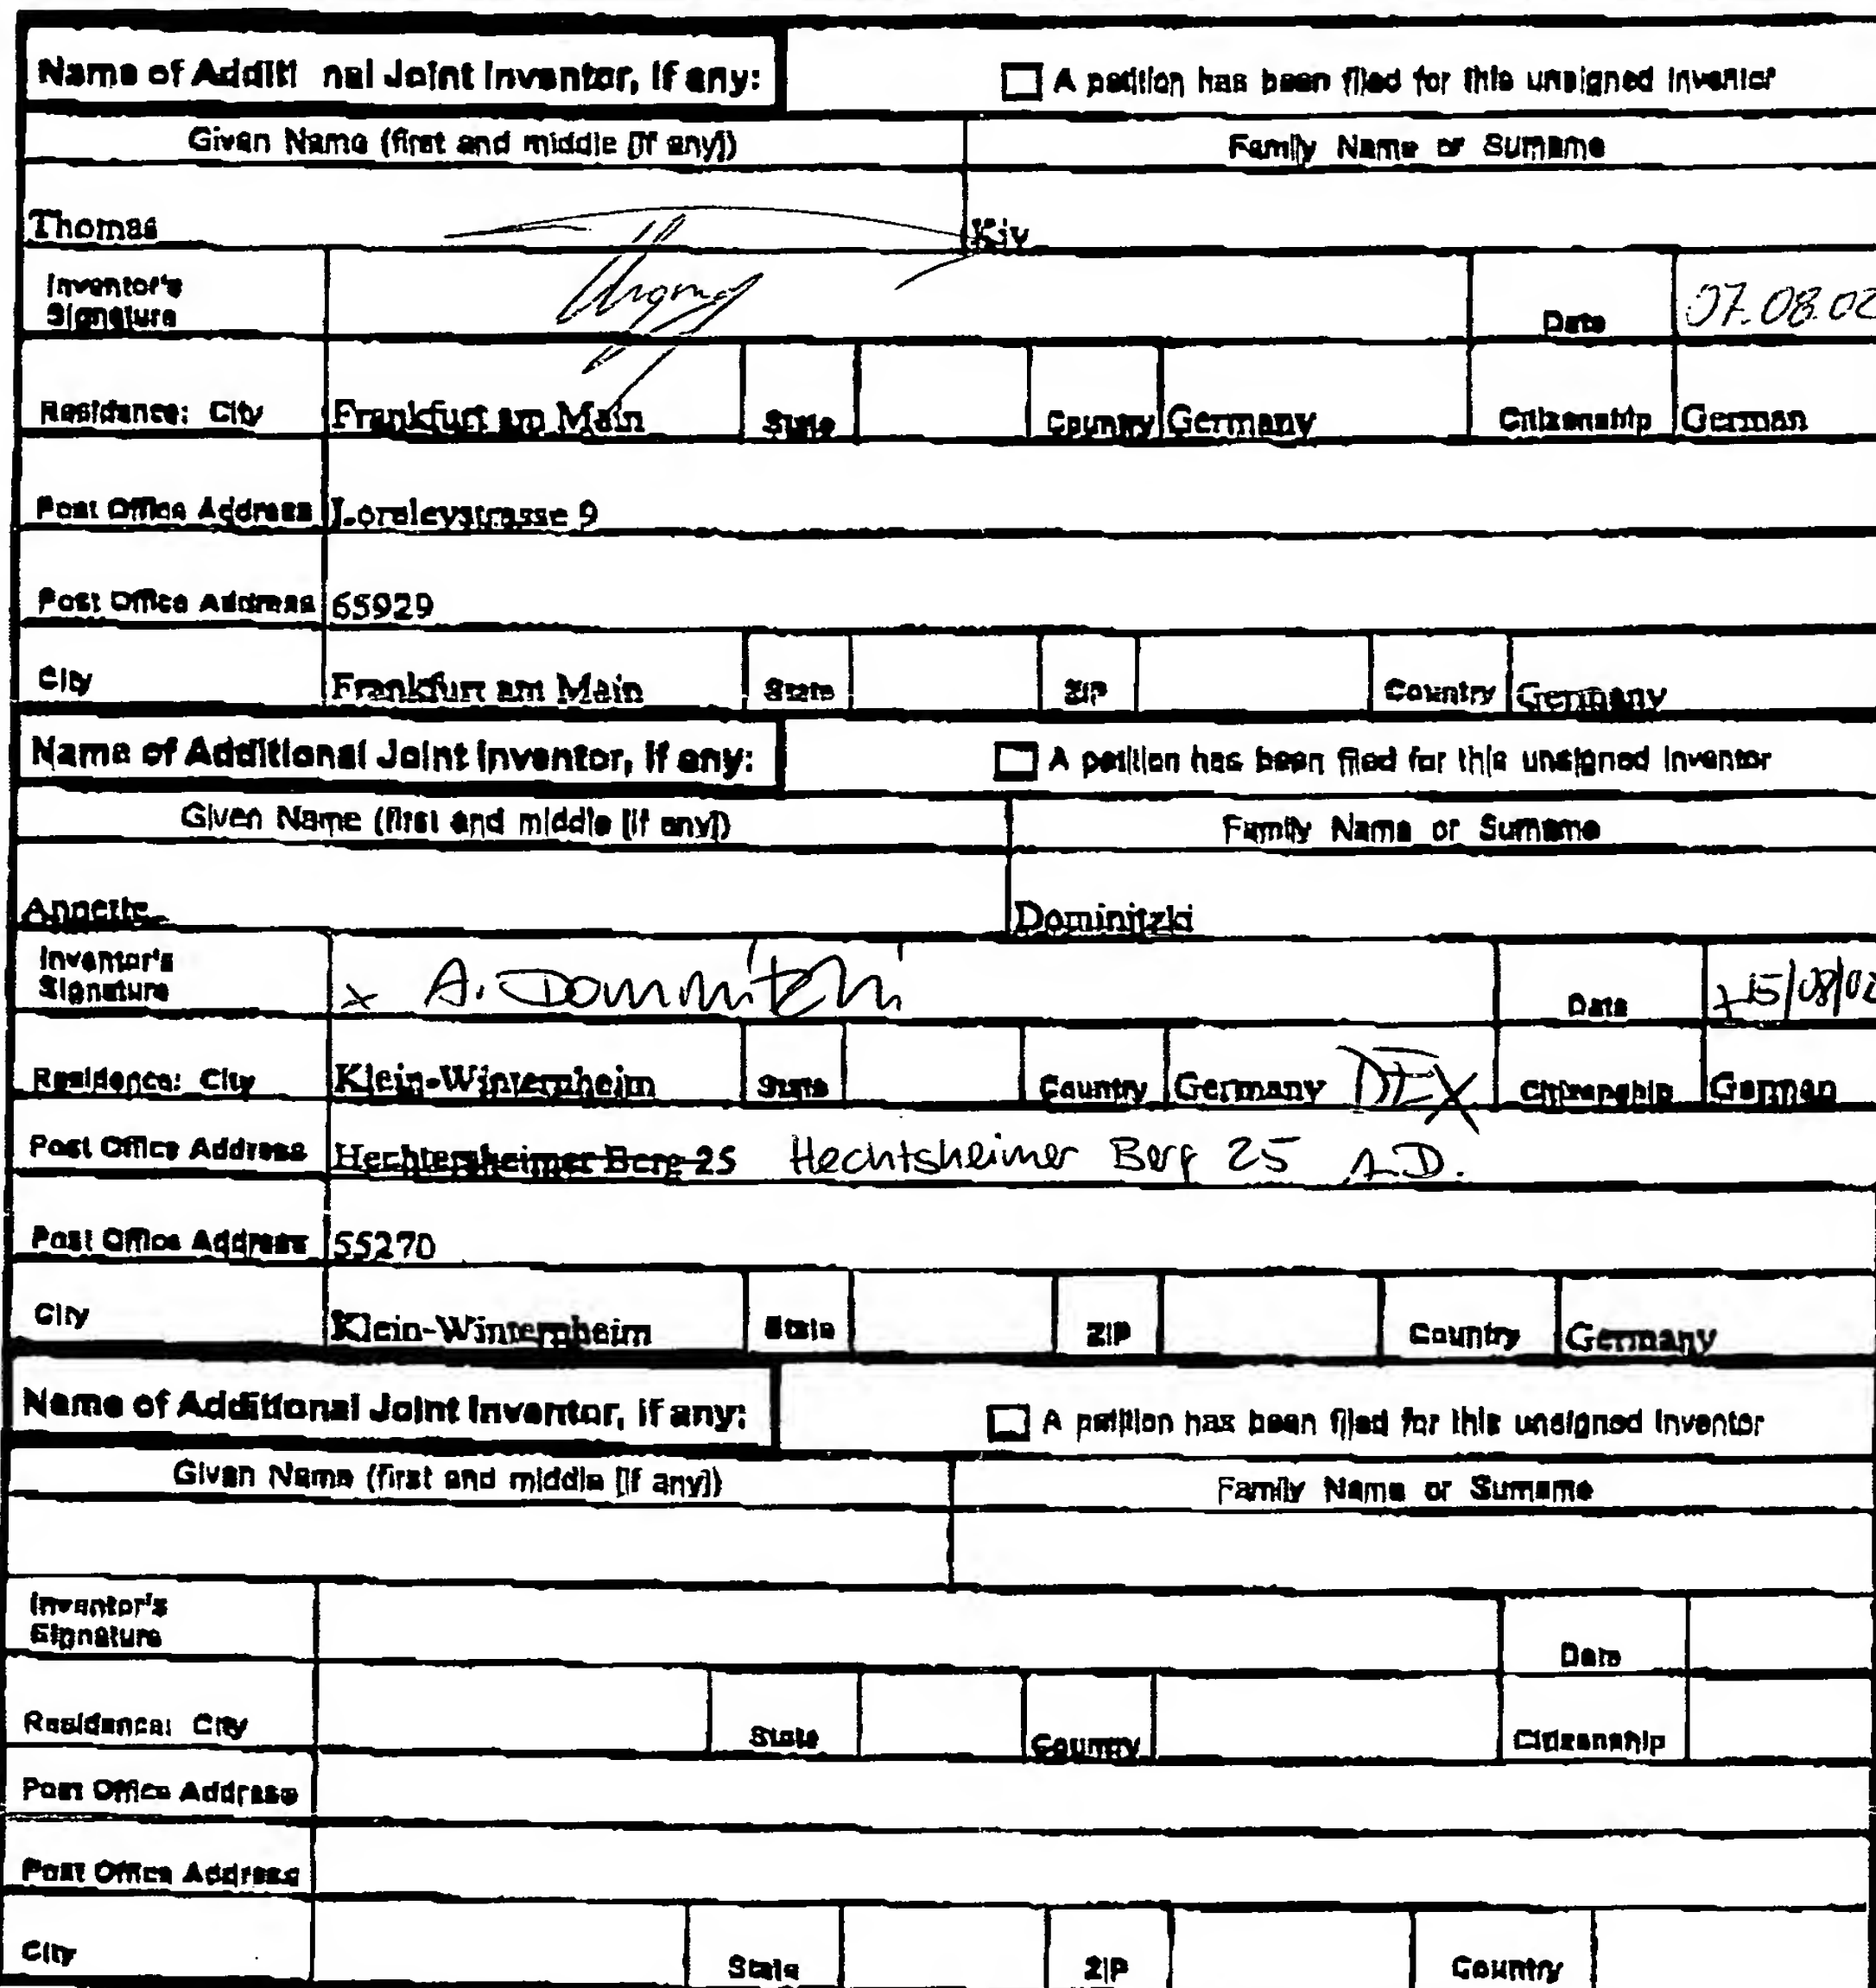 Name of Additi nal Joint Inventor, if any:
A petition has been filed for this unsigned inventor
Given Name (first and middle [if any]) Family Name or Surname
Thomas Kiy
Inventor's Signature Date 07.08.02
Residence: City Frankfurt am Main State Country Germany Citizenship German
Post Office Address Loreleystrasse 9
Post Office Address 65929
City Frankfurt am Main State ZIP Country Germany
Name of Additional Joint Inventor, if any:
A petition has been filed for this unsigned inventor
Given Name (first and middle [if any]) Family Name or Surname
Annette Dominitzki
Inventor's Signature x A. Dominitzki Date 15/08/02
Residence: City Klein-Winternheim State Country Germany DEX Citizenship German
Post Office Address Hechtersheimer Berg 25 Hechtsheimer Berg 25 A.D.
Post Office Address 55270
City Klein-Winternheim State ZIP Country Germany
Name of Additional Joint Inventor, if any:
A petition has been filed for this unsigned inventor
Given Name (first and middle [if any]) Family Name or Surname
Inventor's Signature Date
Residence: City State Country Citizenship
Post Office Address
Post Office Address
City State ZIP Country